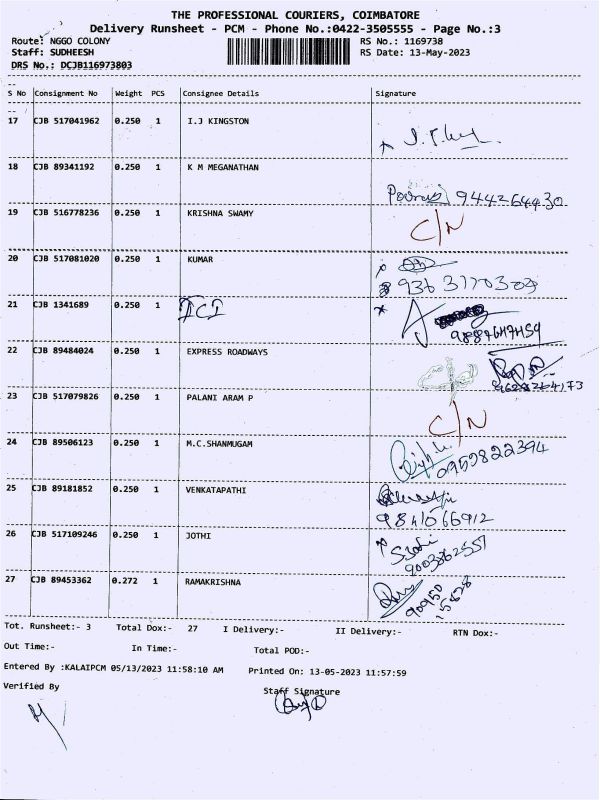 THE PROFESSIONAL COURIERS, COIMBATORE
Delivery Runsheet - PCM - Phone No.:0422-3505555 - Page No.:3
Route: NGGO COLONY RS No.: 1169738
Staff: SUDHEESH RS Date: 13-May-2023
DRS No.: DCJB116973803
S No Consignment No Weight PCS Consignee Details Signature
17 CJB 517041962 0.250 1 I.J KINGSTON
18 CJB 89341192 0.250 1 K M MEGANATHAN
9442644030
19 CJB 516778236 0.250 1 KRISHNA SWAMY
C/N
20 CJB 517081020 0.250 1 KUMAR
21 CJB 1341689 0.250 1 ICI
22 CJB 89484024 0.250 1 EXPRESS ROADWAYS
23 CJB 517079826 0.250 1 PALANI ARAM P
C/N
24 CJB 89506123 0.250 1 M.C.SHANMUGAM
25 CJB 89181852 0.250 1 VENKATAPATHI
9841066912
26 CJB 517109246 0.250 1 JOTHI
9003862557
27 CJB 89453362 0.272 1 RAMAKRISHNA
Tot. Runsheet:- 3 Total Dox:- 27 I Delivery:- II Delivery:- RTN Dox:-
Out Time:- In Time:- Total POD:-
Entered By :KALAIPCM 05/13/2023 11:58:10 AM Printed On: 13-05-2023 11:57:59
Verified By Staff Signature